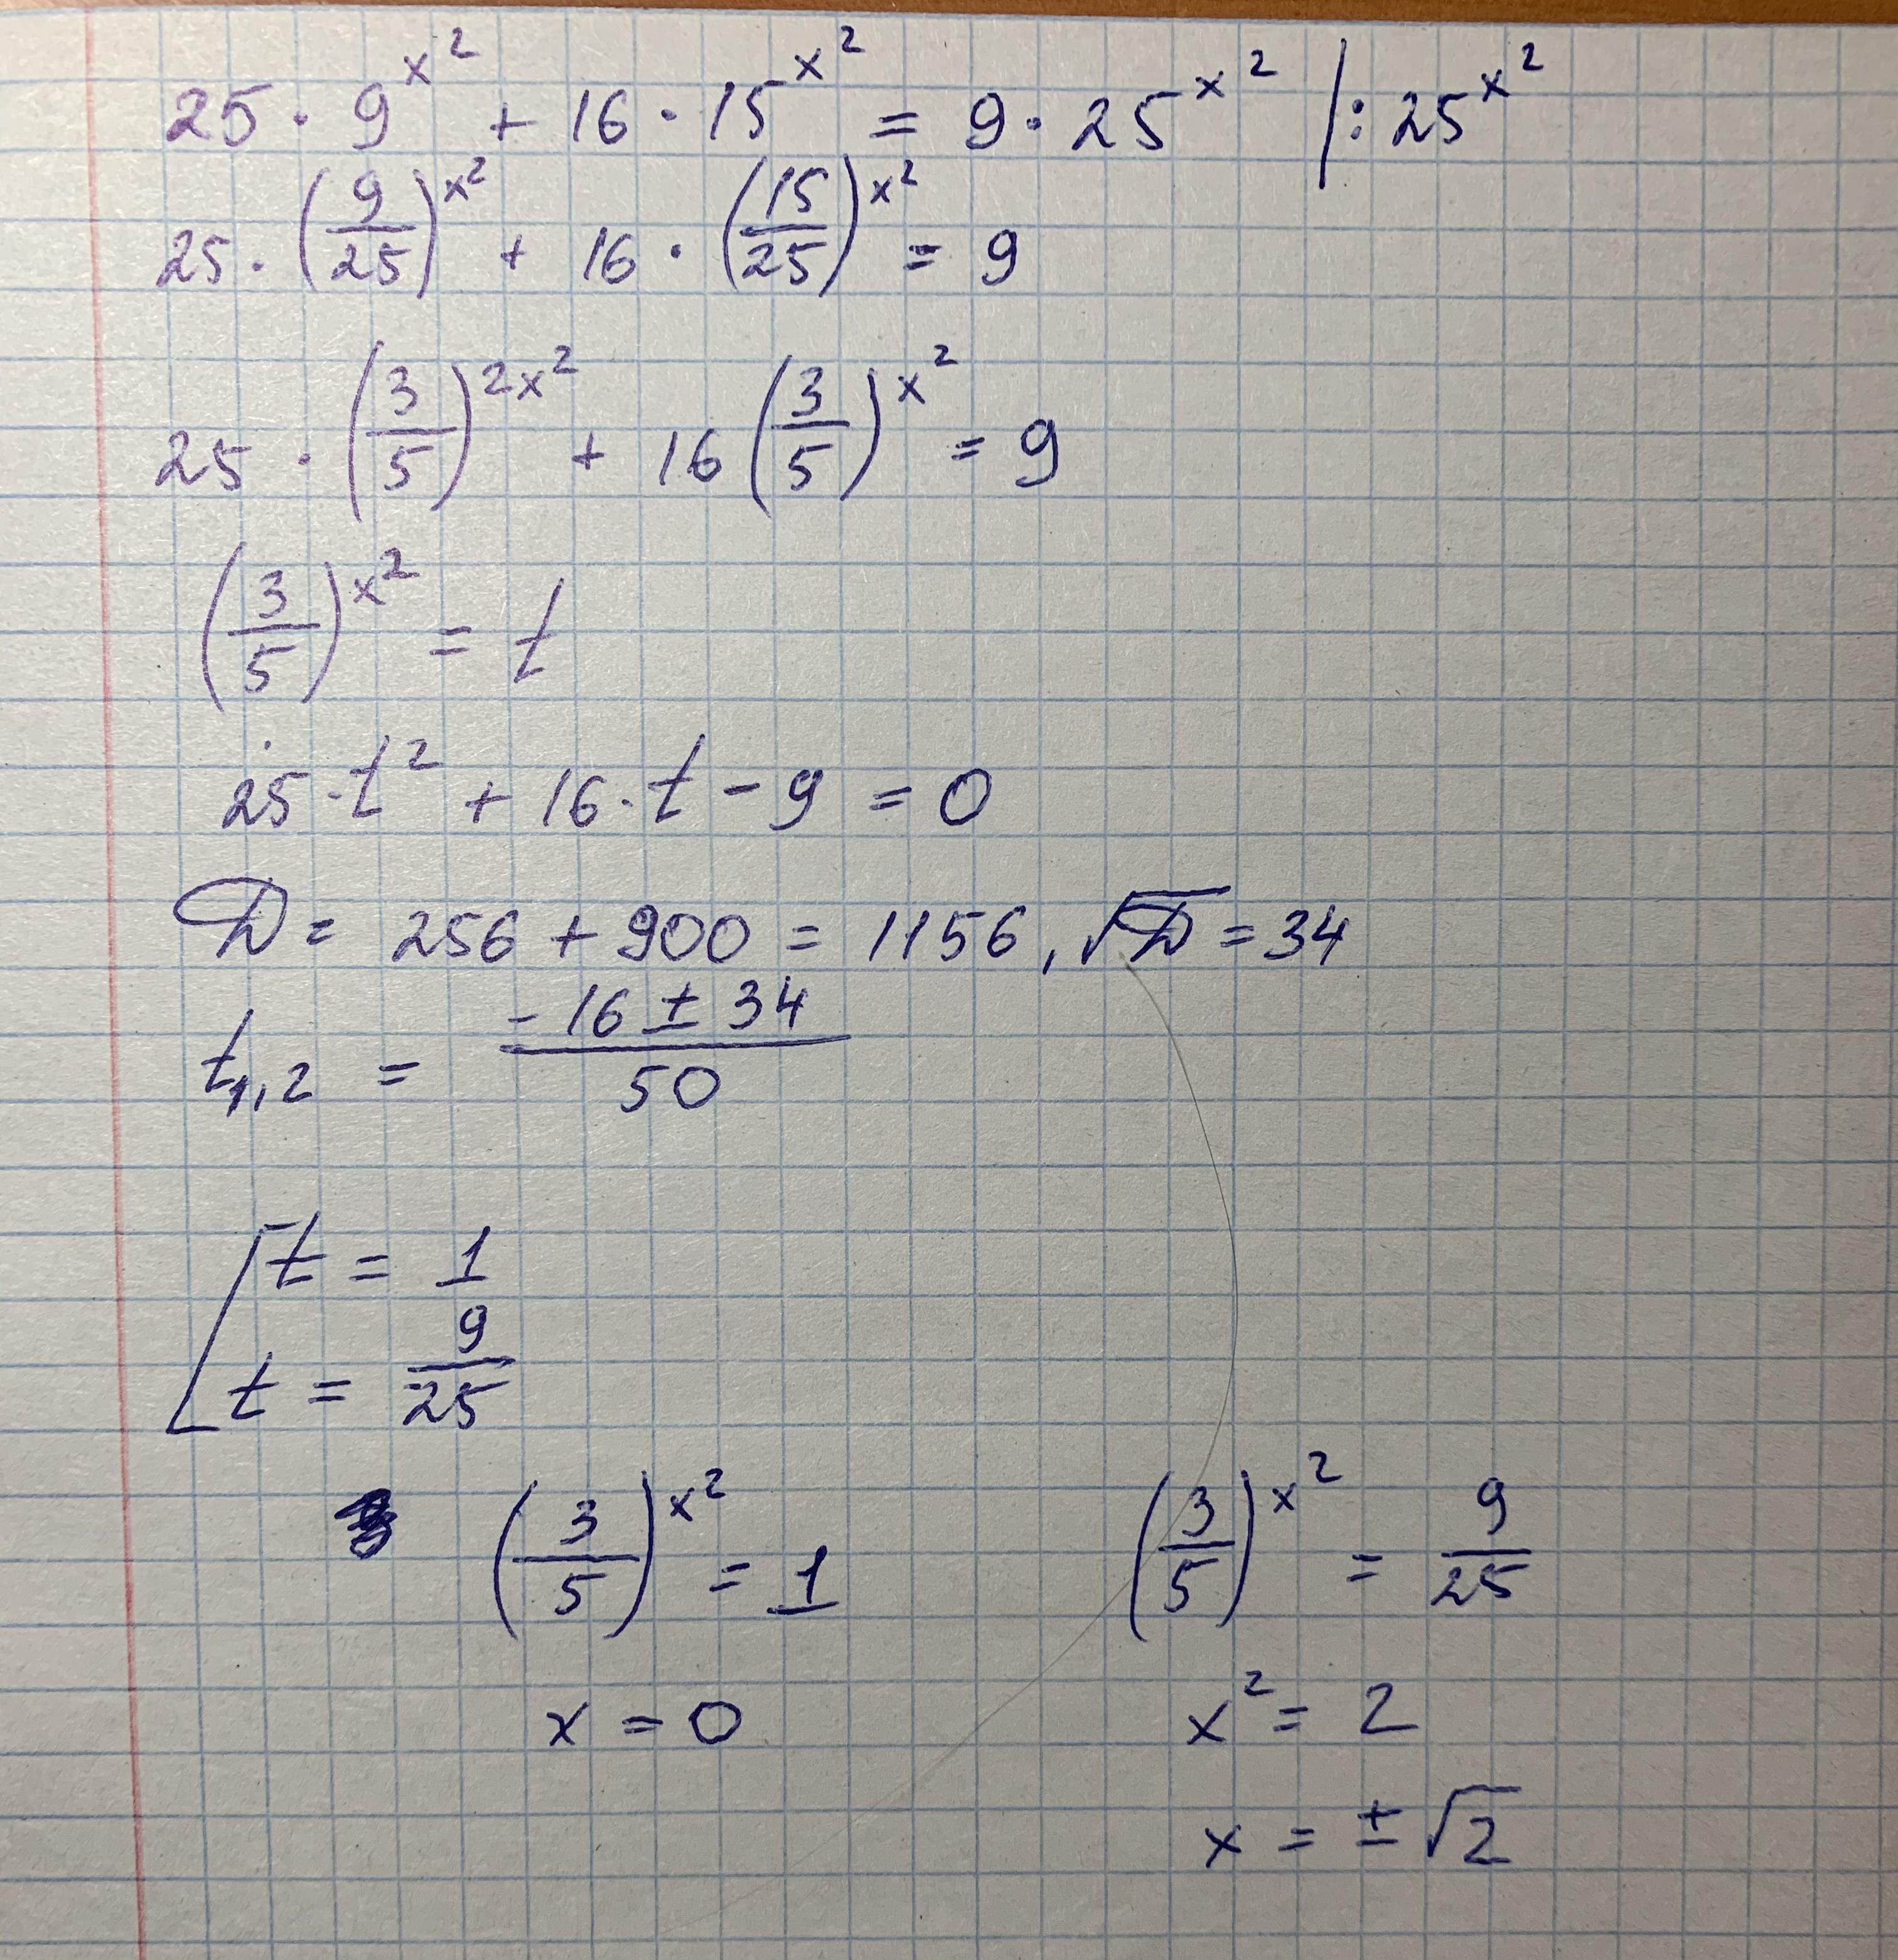 25 · 9^x^2 + 16 · 15^x^2 = 9 · 25^x^2 | : 25^x^2
25 · (9/25)^x^2 + 16 · (15/25)^x^2 = 9
25 · (3/5)^2x^2 + 16 (3/5)^x^2 = 9
(3/5)^x^2 = t
25 · t^2 + 16 · t - 9 = 0
D = 256 + 900 = 1156, √D = 34
t1,2 = (-16 ± 34)/50
[ t = 1
t = 9/25
(3/5)^x^2 = 1 (3/5)^x^2 = 9/25
x = 0 x^2 = 2
x = ± √2